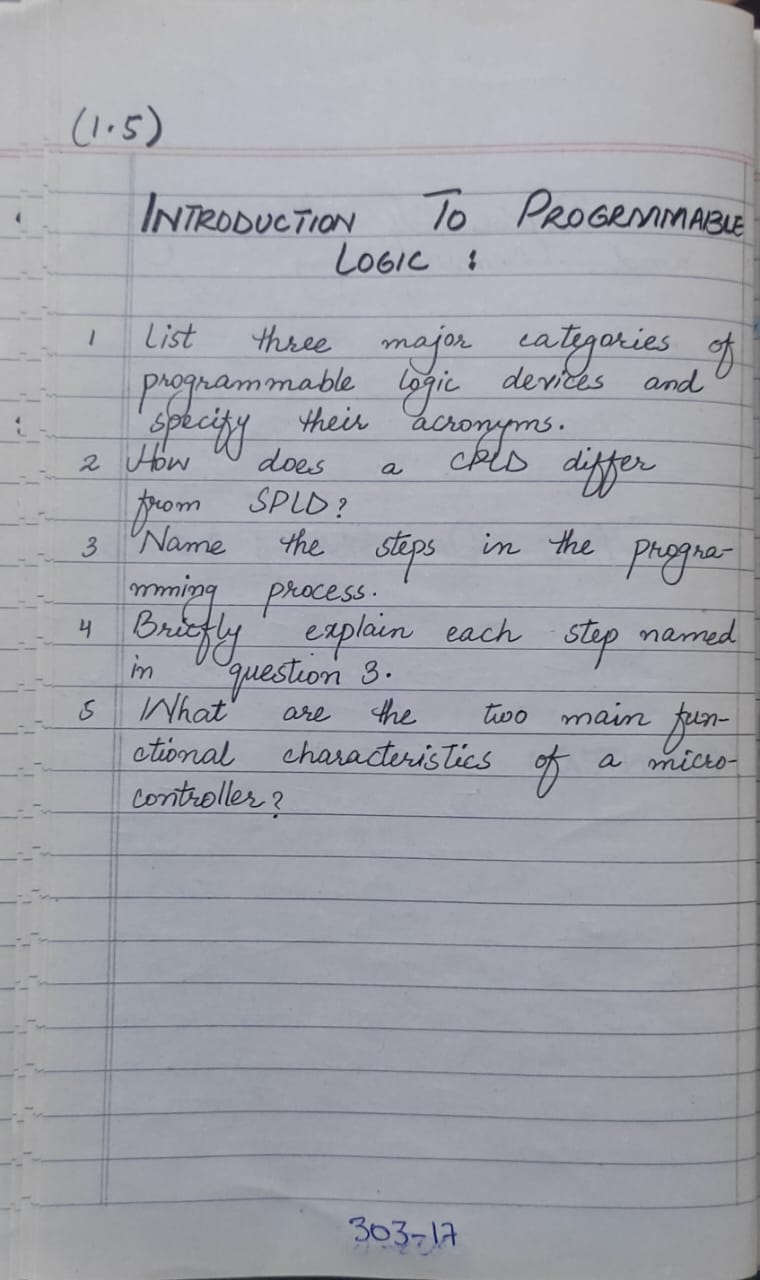 (1.5)
INTRODUCTION TO PROGRMMABLE
LOGIC :
1 List three major categories of
programmable logic devices and
specify their acronyms.
2 How does a CPLD differ
from SPLD?
3 Name the steps in the progra-
mming process.
4 Briefly explain each step named
in question 3.
5 What are the two main fun-
ctional characteristics of a micro-
controller?
303-17